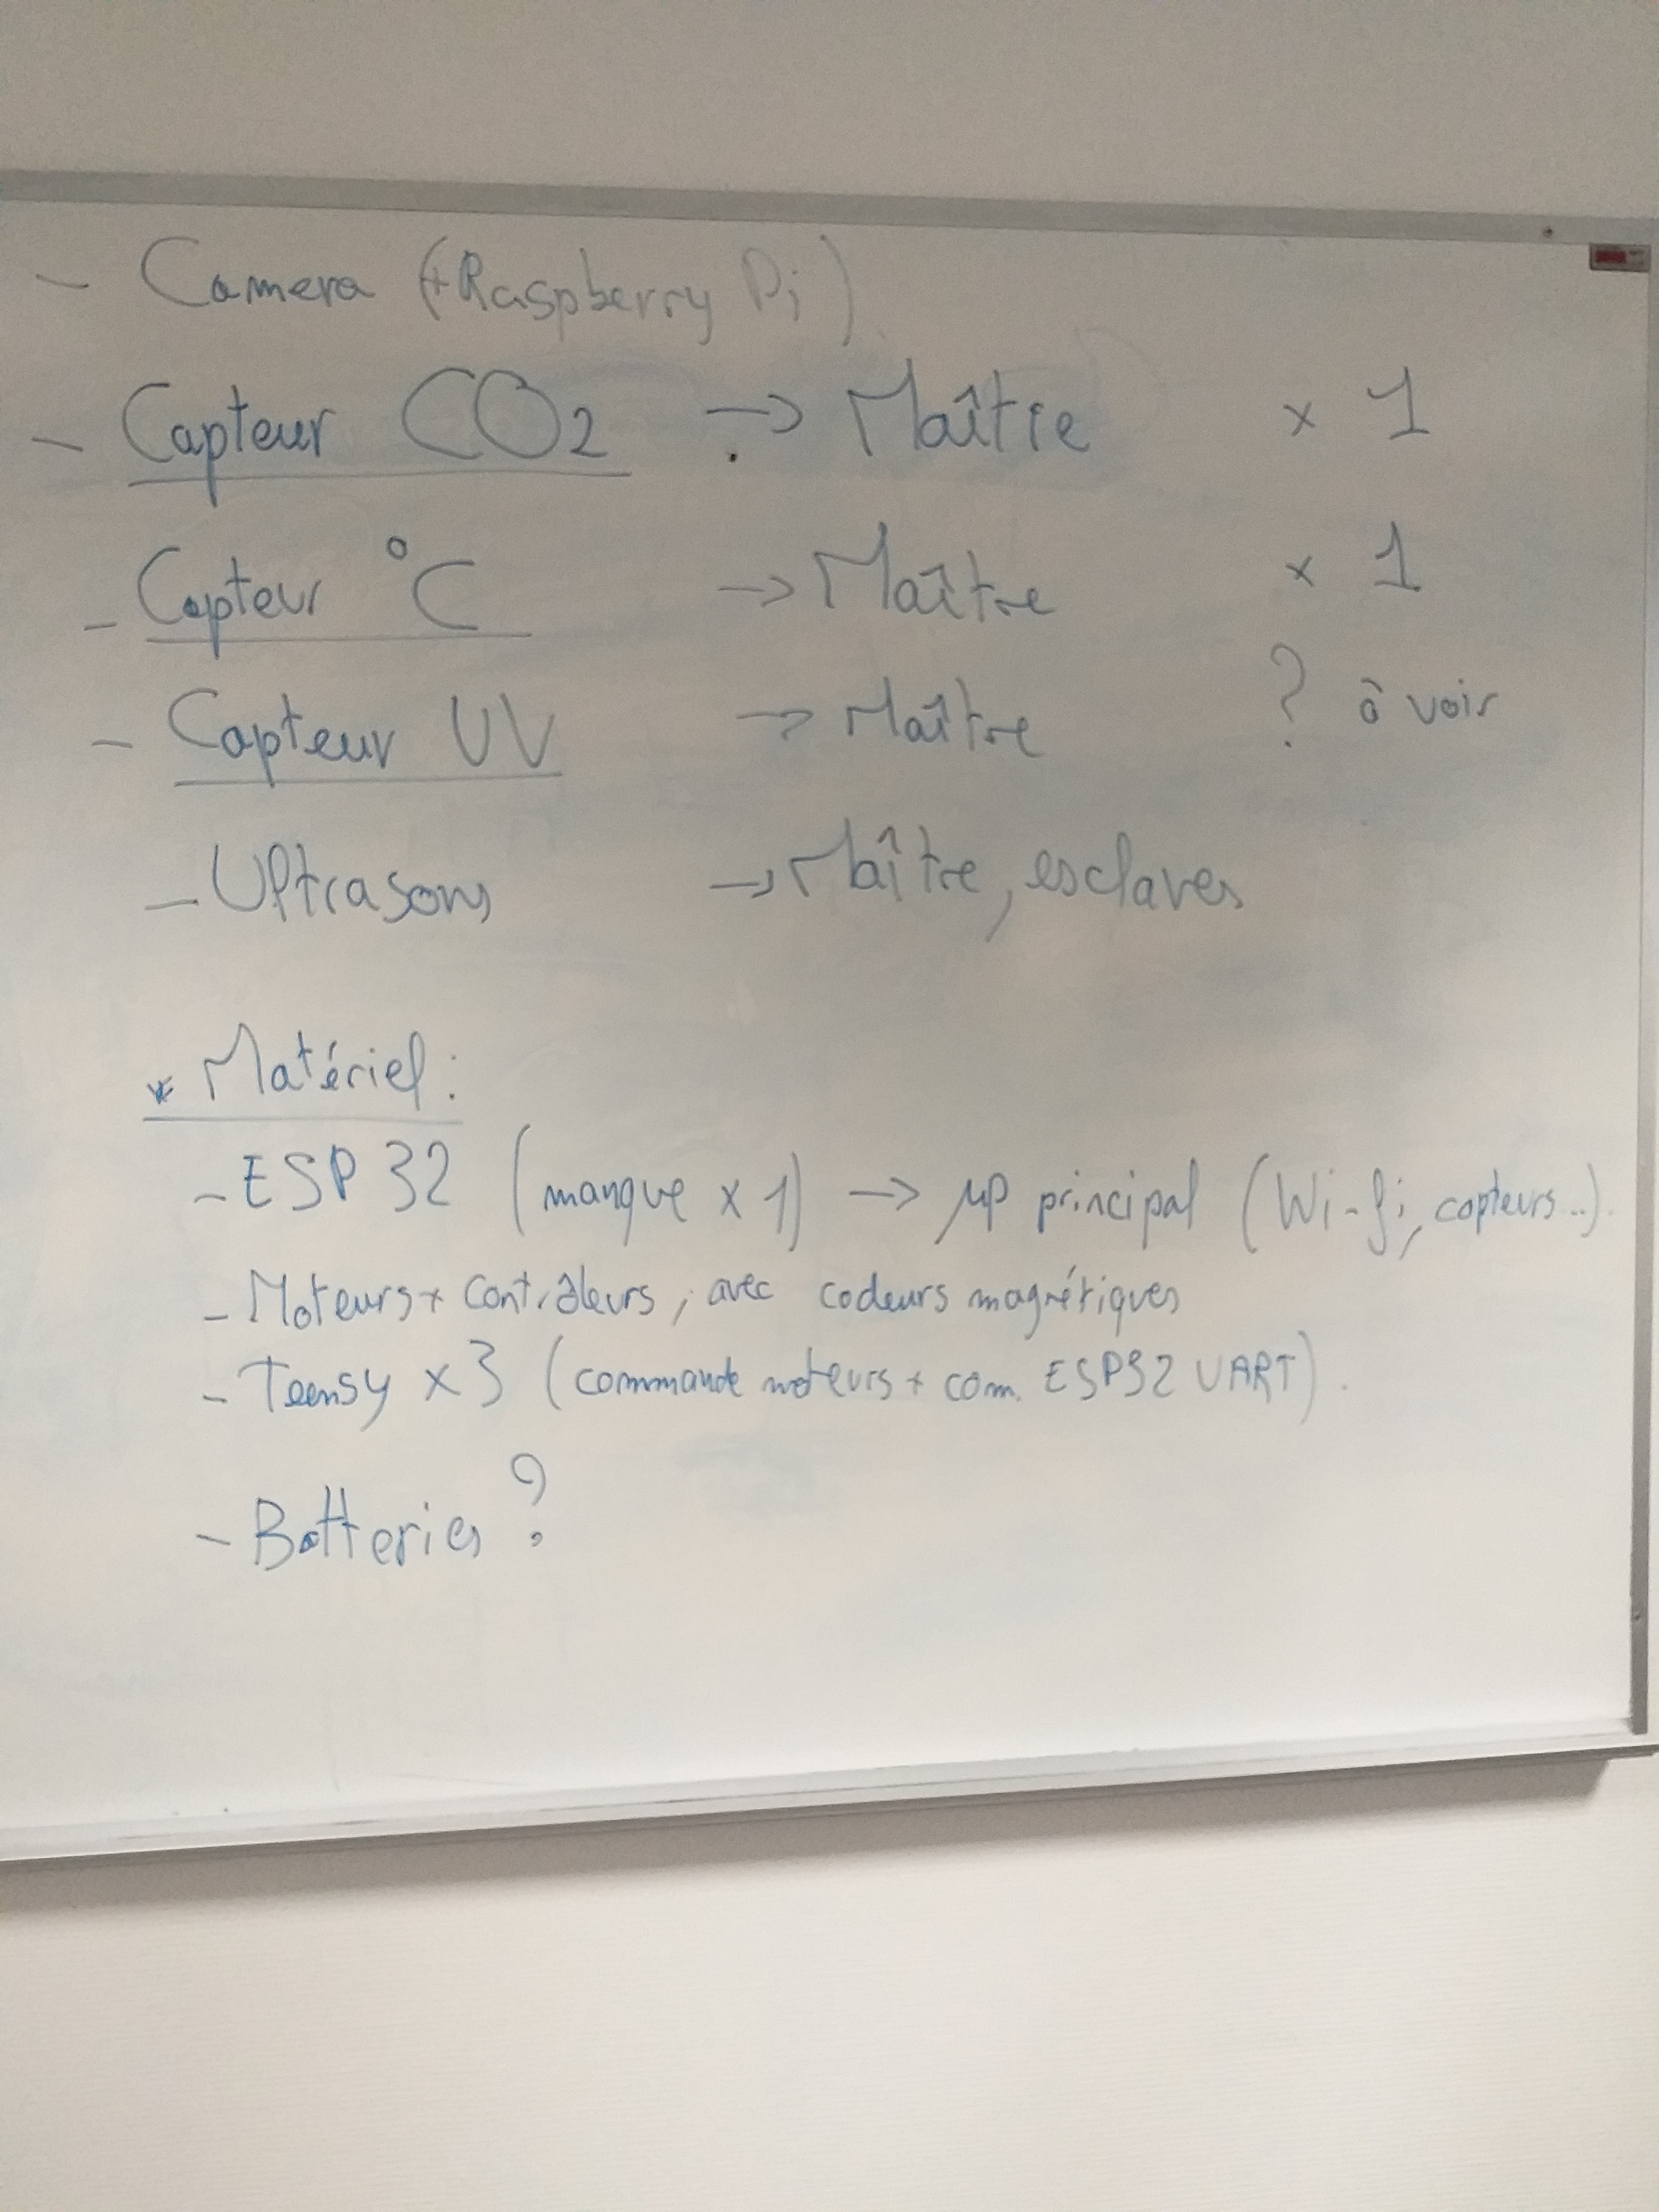 - Camera (+Raspberry Pi)
- Capteur CO2 -> Maître x 1
- Capteur °C -> Maître x 1
- Capteur UV -> Maître ? à voir
- Ultrasons -> Maître, esclaves
* Matériel :
- ESP 32 (manque x 1) -> µP principal (Wi-fi, capteurs...).
- Moteurs + contrôleurs, avec codeurs magnétiques
- Teensy x3 (commande moteurs + com. ESP32 UART).
- Batteries ?